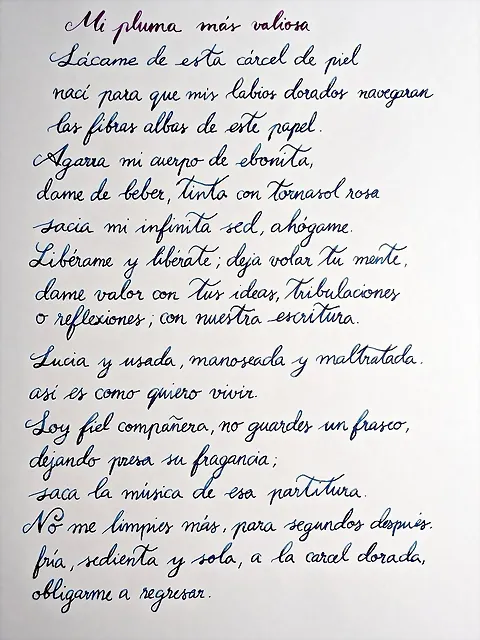 Mi pluma más valiosa
Sácame de esta cárcel de piel
nací para que mis labios dorados navegaran
las fibras albas de este papel.
Agarra mi cuerpo de ebonita,
dame de beber, tinta con tornasol rosa
sacia mi infinita sed, ahógame.
Libérame y libérate; deja volar tu mente,
dame valor con tus ideas, tribulaciones
o reflexiones; con nuestra escritura.
Sucia y usada, manoseada y maltratada.
así es como quiero vivir.
Soy fiel compañera, no guardes un frasco,
dejando presa su fragancia;
saca la música de esa partitura.
No me limpies más, para segundos después.
fría, sedienta y sola, a la carcel dorada,
obligarme a regresar.